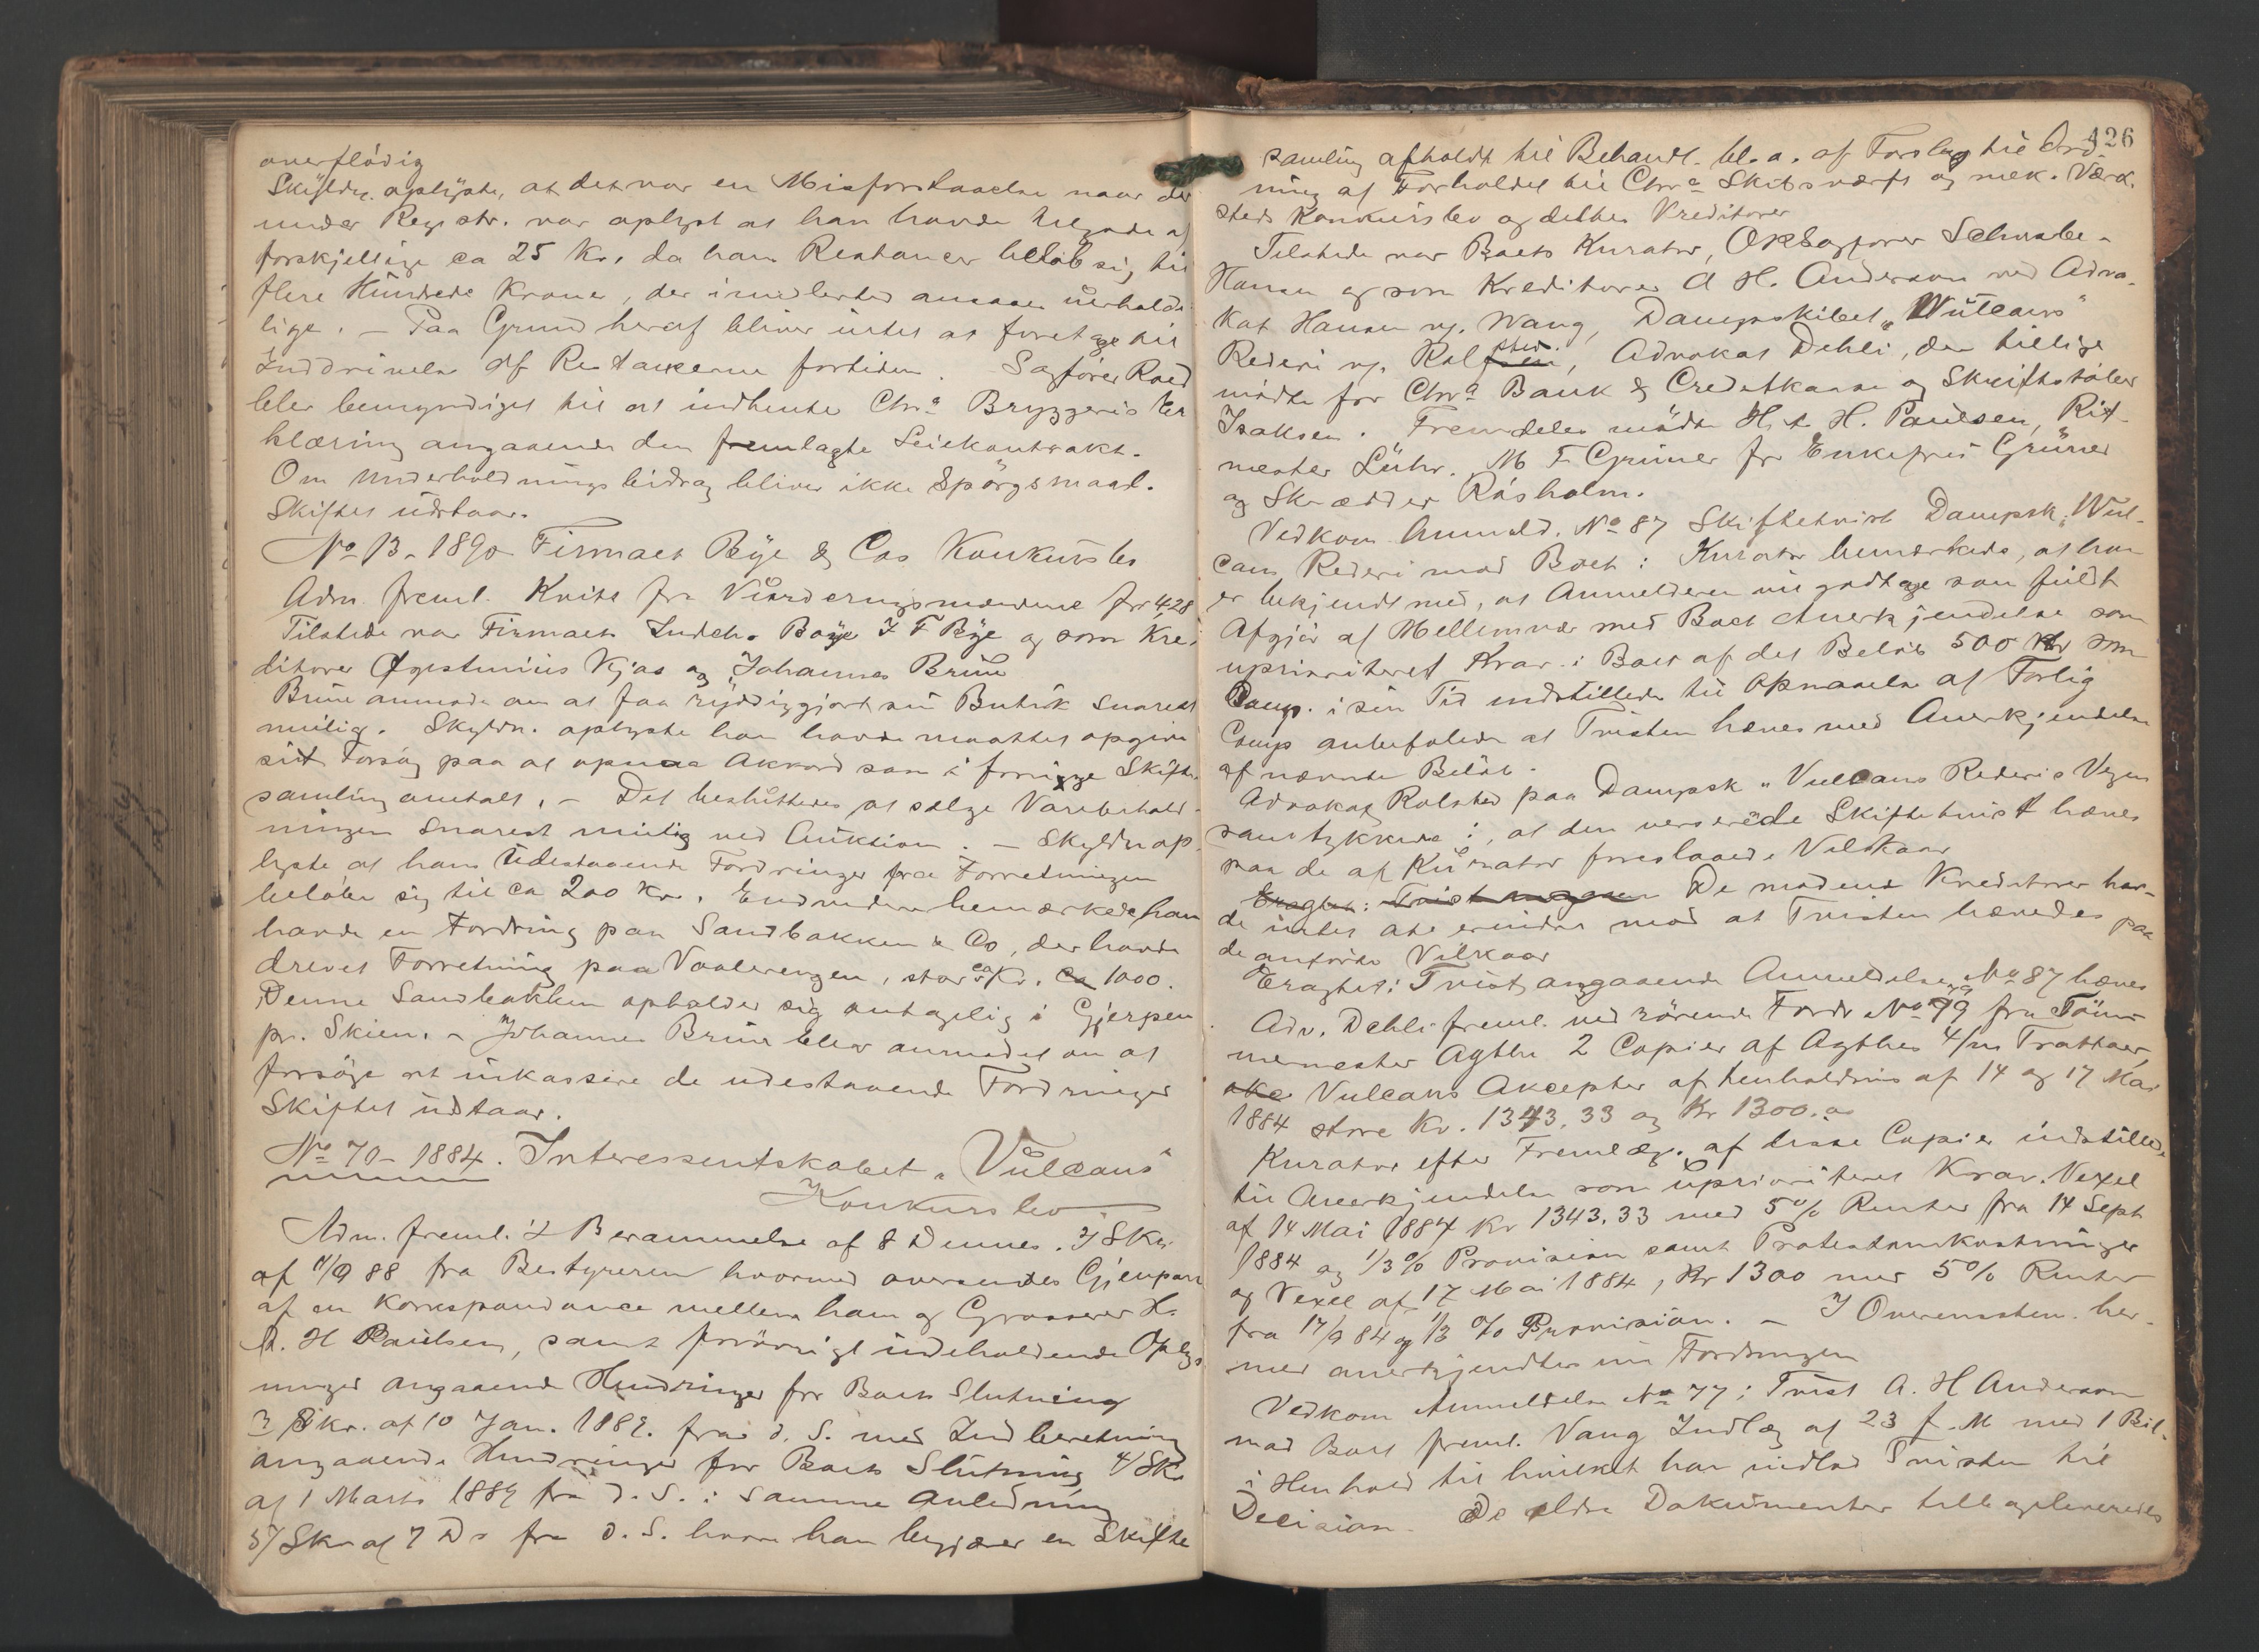 overflødig
Skyldn. oplyste, at det var en Misforstaaelse naar der
under Registr. var oplyst at han havde tilgode af
forskjellige ca 25 Kr., da hans Restancer beløb sig til
flere Hundrede Kroner, der imidlertid ansaaes uerholde
lige. – Paa Grund heraf bliver intet at foretage til
Inddrivelse af Restancerne fortiden. Sagfører Roed
blev bemyndiget til at indhente Chra Bryggeris Er
klæring angaaende den fremlagte Leiekontrakt.
Om Underholdningsbidrag bliver ikke Spørgsmaal.
Skiftet udstaar.
No 13 - 1890 Firmaet Bye & Cos Konkursbo
Adm. freml. Kvitt. fra Vurderingsmændene for 4.28
Tilstede var Firmaets Indeh. F F Bye og som Kre-
ditorer Kjas og Johannes Brun
Brun anmode om at faa ryddiggjort sin Butik snarest
mulig. Skyldn. oplyste han havde maattet opgive
sit Forsøg paa at opnaa Akkord som i forrige Skifte-
samling omtalt. – Det besluttedes at sælge Varebehold-
ningen snarest mulig ved Auktion. – Skyldn op-
lyste at hans Udestaaende Fordringer fra Forretningen
beløber sig til ca 200 Kr. Endvidere bemærkede han
havde en Fordring paa Sandbakken & Co, der havde
drevet Forretning paa Vaalerengen, stor ca Kr. ca 1000.
Denne Sandbakken opholder sig antagelig i Gjerpen
pr. Skien. – Johannes Brun blev anmodet om at
forsøge at inkassere de udestaaende Fordringer
Skiftet udstaar.
No 70 - 1884. Interessentskabet „Vulcans"
Konkursbo
Adm. freml. 1/ Berammelse af 8 Dennes. 2/ Skr.
af 11/9 88 fra Bestyreren hvormed oversendes Gjenpart
af en Korrespondance mellem ham og Grosserer Hr.
A. H Paulsen, samt forøvrigt indeholdende Oplys
ninger angaaende Hindringer for Boets Slutning
3/ Skr. af 10 Jan. 1889. fra d. S. med Indberetning
angaaende Hindringer for Boets Slutning 4/ Skr
af 1 Marts 1889 fra d. S. i samme Anledning
5/ Skr af 7 Ds fra d. S. hvori han begjærer en Skifte
126
samling afholdt til Behandl. bl. a. af Forslag til Ord-
ning af Forholdet til Chra Skibsværft og mek. Værk-
steds Konkursbo og dettes Kreditorer
Tilstede var Boets Kurator, ORSagfører Schwabe-
Hansen og som Kreditorer A H. Anderson ved Advo-
kat Hansen og Wang, Dampskibet „Vulcans"
Rederi ved Rolsted, Advokat Dehli, der tillige
mødte for Chra Bank & Creditkasse og Skriftstøber
Isaksen. Fremdeles mødte H. H. Paulsen, Rit-
mester Lühr. M F Grüner for Enkefru Grüner
og Skrædder Råsholm.
Vedkom Anmeld. No 87 Skiftetvist Dampsk. „Vul-
cans Rederi mod Boet: Kurator bemærkede, at han
er bekjendt med, at Anmelderen vil godtage som fuldt
Afgjør af Mellemvær med Boet Anerkjendelse som
uprioriteret Krav i Boet af det Beløb 500 Kr som
Comp. i sin Tid indstillede til Opnaaelse af Forlig
Comp anbefalede at Tvisten hæves med Anerkjendelse
af nævnte Beløb.
Advokat Rolsted paa Dampsk „Vulcans Rederis Vegne
samtykkede i, at den verserede Skiftetvist hæves
paa de af Kurator foreslaaede Vilkaar
De mødende Kreditorer hav-
de intet at erindre mod at Tvisten hævedes paa
de anførte Vilkaar
Eragtet: Tvist angaaende Anmeldelse No 87 hæves
Adv. Dehli freml. ved rørende Fordr No 79 fra Tøm-
mermester Agthe 2 Copier af Agthes 4/m Trattaer
Vulcans Akcepter af henholdsvis af 14 og 17 Mai
1884 store Kr. 1343.33 og Kr 1300.00
Kurator efter Fremlæg. af disse Copier indstillede
til Anerkjendelse som uprioriteret Krav. Vexel
af 14 Mai 1884 Kr 1343.33 med 5% Renter fra 14 Sept
1884 og 1/3% Provision samt Protestomkostninger
og Vexel af 17 Mai 1884, Kr 1300 med 5% Renter
fra 17/9 84 og 1/3 % Provision. – I Overensstem. her-
med anerkjendtes nu Fordringen
Vedkom Anmeldelse No 77: Tvist A. H Anderson
mod Boet freml. Vang Indlæg af 23 f. M med 1 Bil.
i Henhold til hvilket han indlod Tvisten til
Decision. De ældre Dokumenter tilbageleveredes